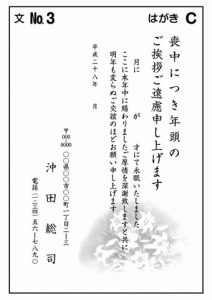 文 No.3
はがき C
喪中につき年頭の
ご挨拶ご遠慮申し上げます
月に　　が　　才にて永眠いたしました
ここに本年中に賜わりましたご厚情を深謝致しますと共に
明年も変らぬご交誼のほどお願い申し上げます
平成二十八年　月
〒000-0000
〇〇県〇〇市〇〇町一丁目二-三
沖田総司
電話（一二三四）五六-七八九〇